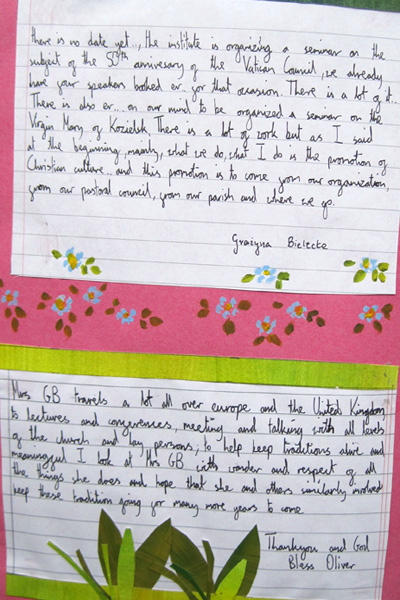 there is no date yet.., the institute is organizing a seminar on the
subject of the 50th anniversary of the Vatican Council, we already
have four speakers booked er.. for that occasion. There is a lot of it..
There is also er... on our mind to be organized a seminar on the
Virgin Mary of Kozielsk. There is a lot of work but as I said
at the beginning, mainly, what we do, what I do is the promotion of
Christian culture.. and this promotion is to come from our organization,
from our pastoral council, from our parish and where we go.
Grażyna Bielecke
Mrs GB travels a lot all over europe and the United Kingdom
to lectures and congerences, meeting and talking with all levels
of the church and lay persons, to help keep traditions alive and
meaningful I look at Mrs GB with wonder and respect of all
the things she does and hope that she and others similarly involved
keep these tradition going for many more years to come.
Thankyou and God
Bless Oliver